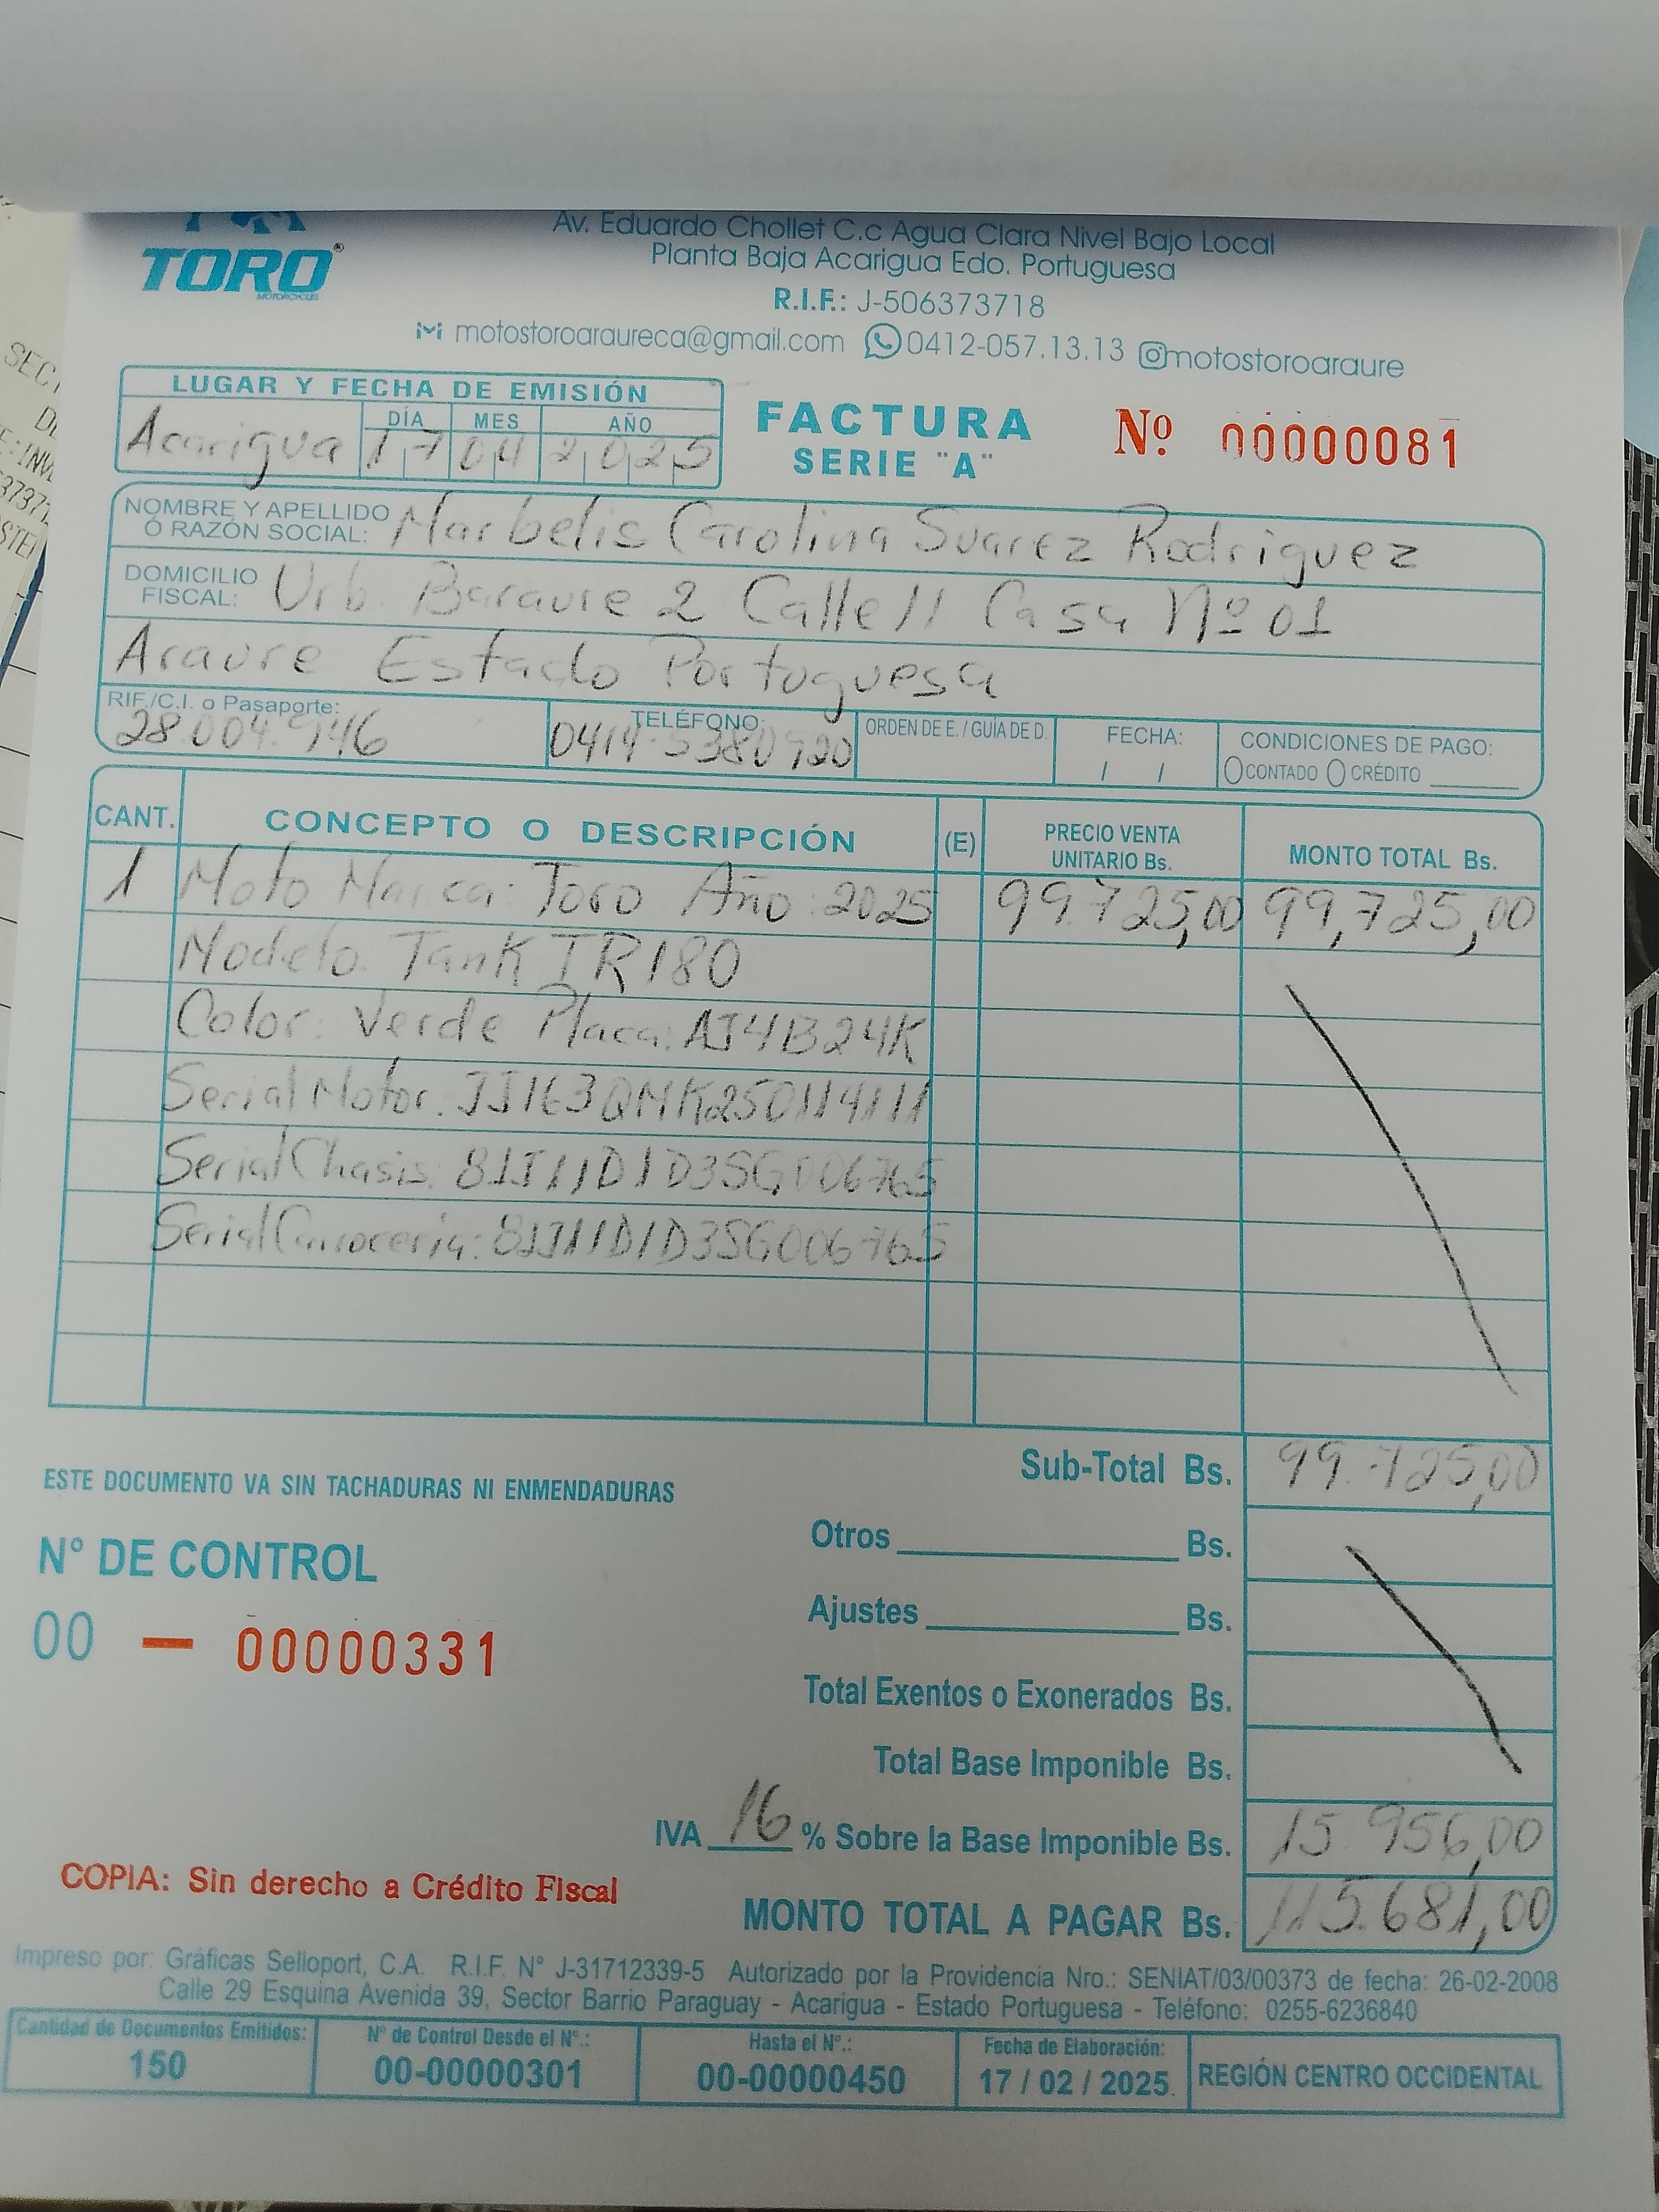 TORO®
MOTORCYCLES
Av. Eduardo Chollet C.c Agua Clara Nivel Bajo Local
Planta Baja Acarigua Edo. Portuguesa
R.I.F.: J-506373718
motostoroaraureca@gmail.com 0412-057.13.13 motostoroaraure
LUGAR Y FECHA DE EMISIÓN
DÍA MES AÑO
Acarigua 17 04 2025
FACTURA
SERIE "A"
Nº 00000081
NOMBRE Y APELLIDO
Ó RAZÓN SOCIAL: Marbelis Carolina Suarez Rodriguez
DOMICILIO
FISCAL: Urb. Baraure 2 Calle 11 Casa Nº 01
Araure Estado Portuguesa
RIF./C.I. o Pasaporte: TELÉFONO: ORDEN DE E. / GUÍA DE D. FECHA: CONDICIONES DE PAGO:
28.004.946 0414-5380920 / / CONTADO CRÉDITO
CANT. CONCEPTO O DESCRIPCIÓN (E) PRECIO VENTA UNITARIO Bs. MONTO TOTAL Bs.
1 Moto Marca: Toro Año: 2025 99.725,00 99,725,00
Modelo Tank TR180
Color: Verde Placa: AJ4B24K
Serial Motor: JJ163QMK250114111
Serial Chasis: 81J11D1D3SG006765
Serial Carroceria: 81J11D1D3SG006765
Sub-Total Bs. 99.725,00
ESTE DOCUMENTO VA SIN TACHADURAS NI ENMENDADURAS
Otros Bs.
N° DE CONTROL
Ajustes Bs.
00 – 00000331
Total Exentos o Exonerados Bs.
Total Base Imponible Bs.
IVA 16 % Sobre la Base Imponible Bs. 15.956,00
COPIA: Sin derecho a Crédito Fiscal
MONTO TOTAL A PAGAR Bs. 115.681,00
Impreso por: Gráficas Selloport, C.A. R.I.F. N° J-31712339-5 Autorizado por la Providencia Nro.: SENIAT/03/00373 de fecha: 26-02-2008
Calle 29 Esquina Avenida 39, Sector Barrio Paraguay - Acarigua - Estado Portuguesa - Teléfono: 0255-6236840
Cantidad de Documentos Emitidos: N° de Control Desde el N°.: Hasta el N°.: Fecha de Elaboración:
150 00-00000301 00-00000450 17 / 02 / 2025. REGIÓN CENTRO OCCIDENTAL